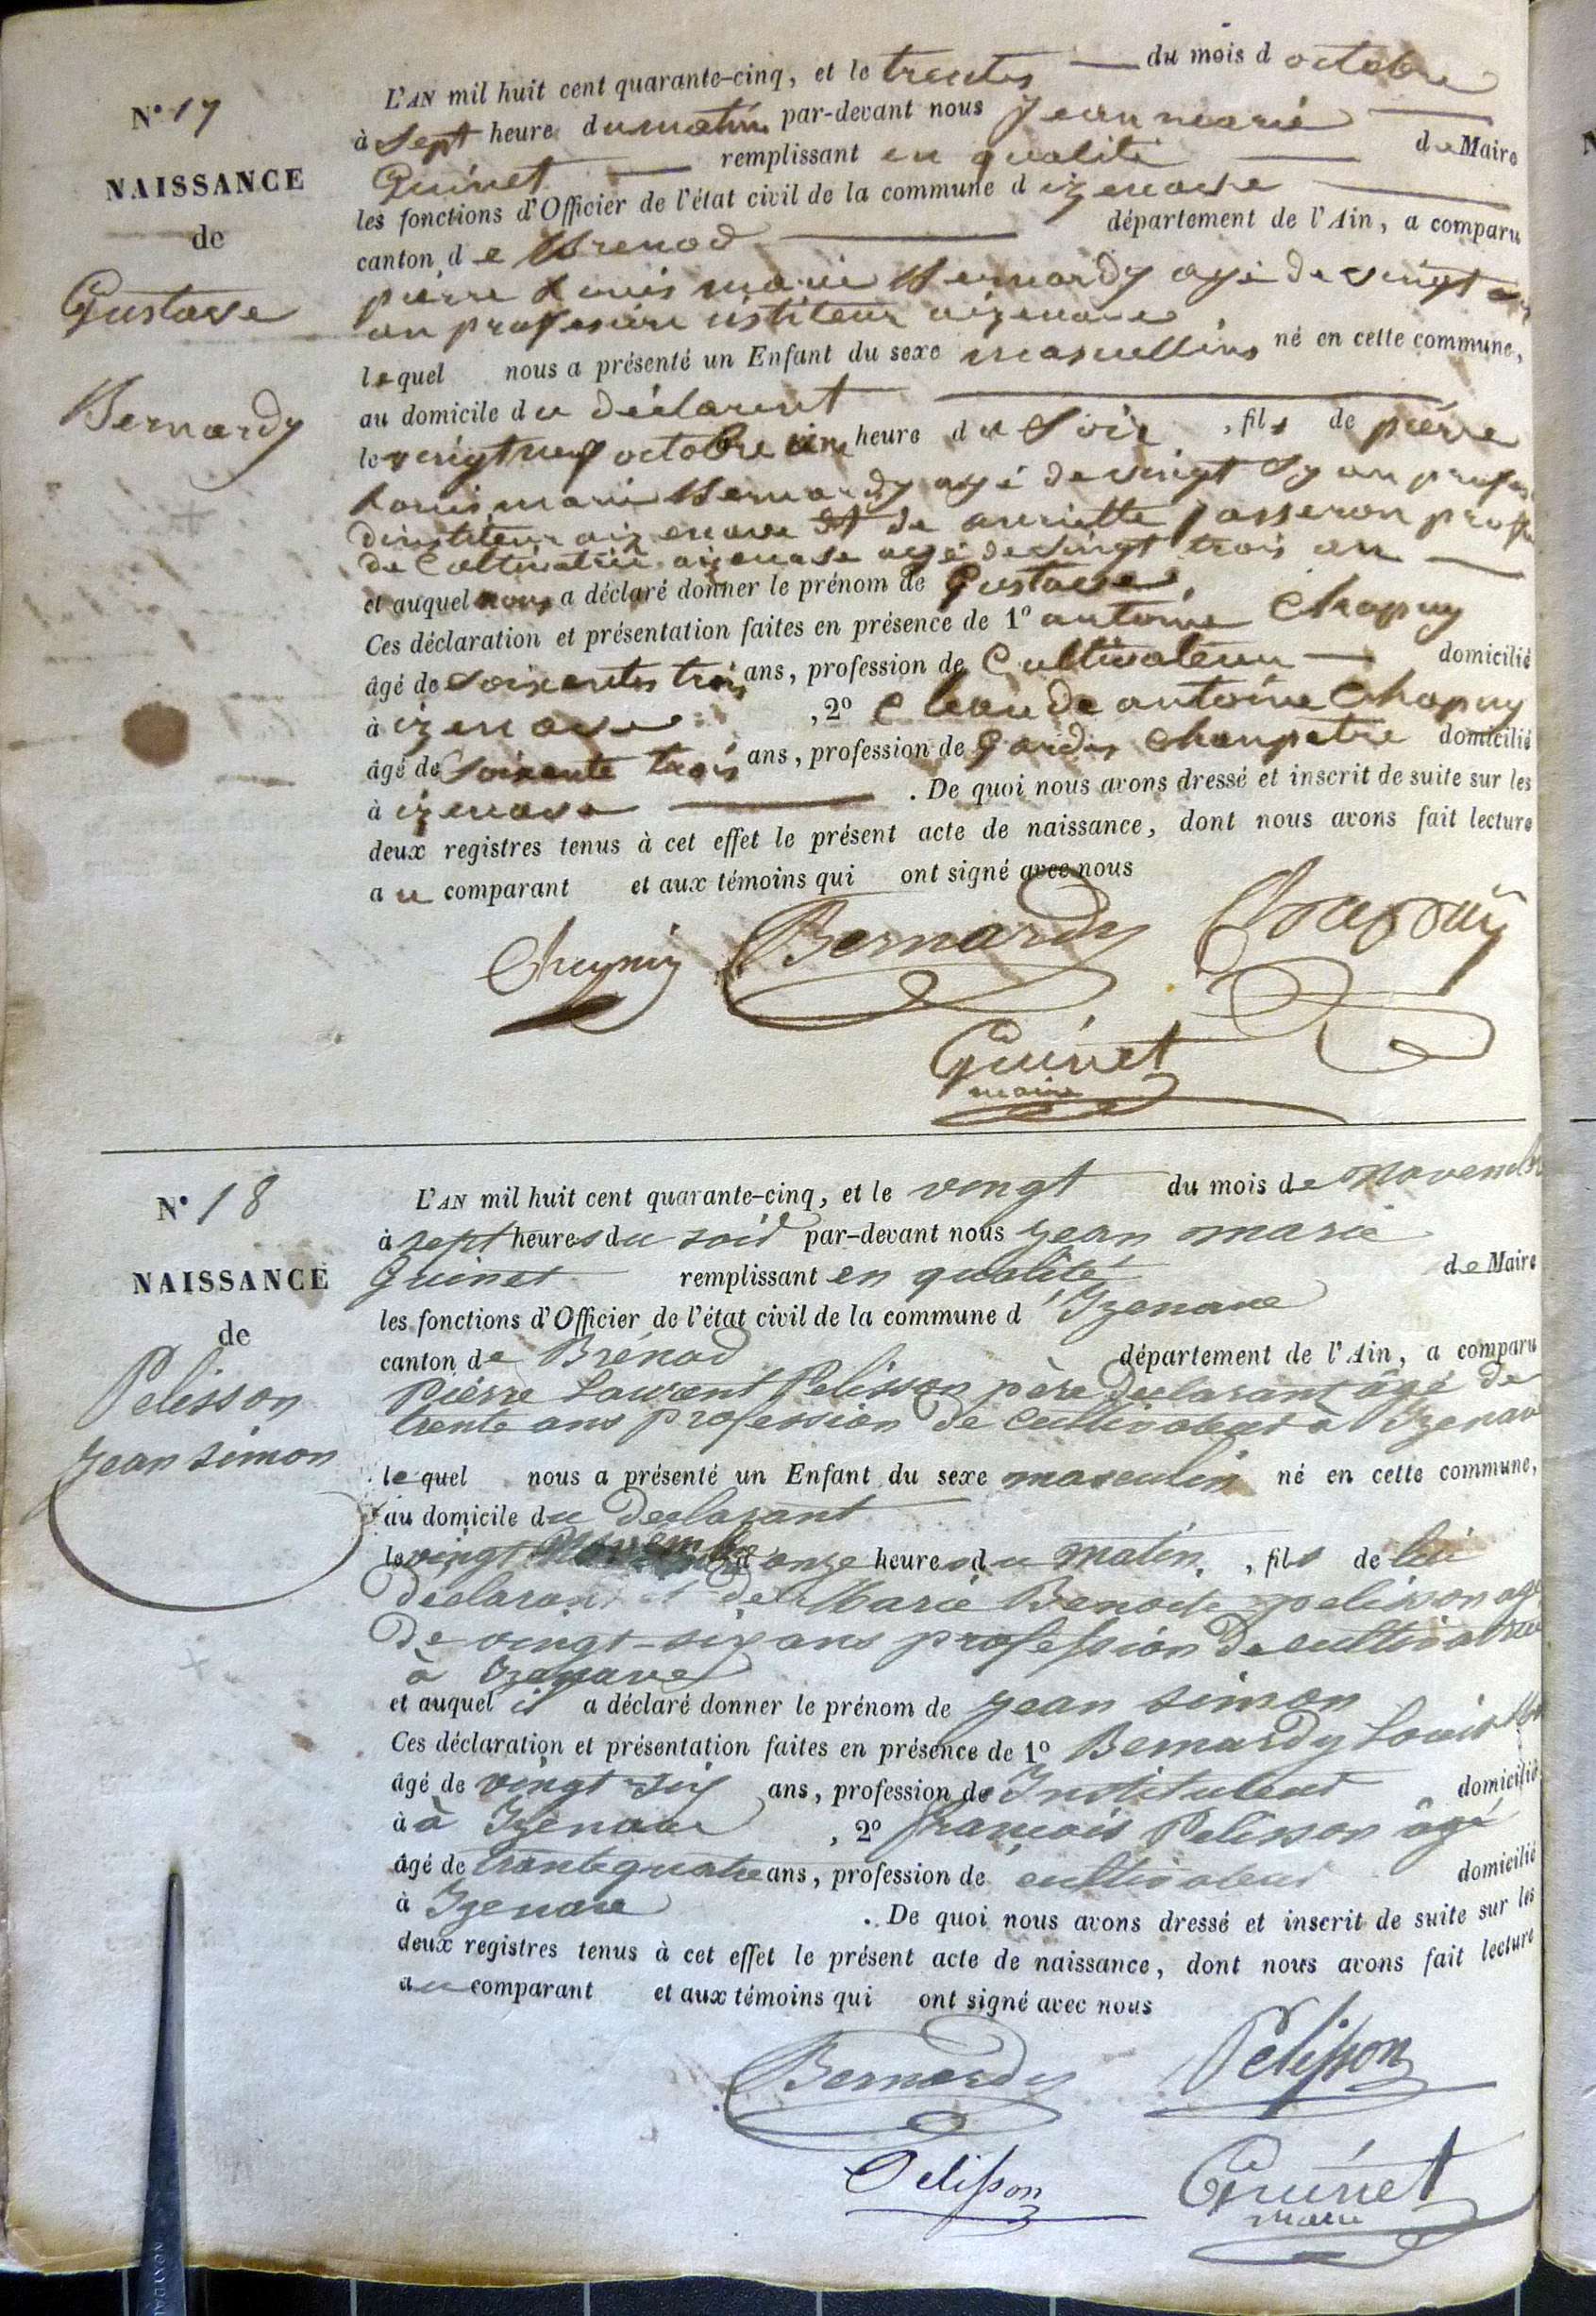 N° 17
NAISSANCE
de
Gustave
Bernardy
L'AN mil huit cent quarante-cinq, et le trentes du mois d octobre
à Sept heure du matin par-devant nous Jean marie
Guinet remplissant en qualité de Maire
les fonctions d'Officier de l'état civil de la commune d izenave
canton de Brenod département de l'Ain, a comparu
pierre Louis marie Bernardy agé de vingt
an profesion istiteur aizenave
lequel nous a présenté un Enfant du sexe masculins né en cette commune,
au domicile du déclarent
le vingt neuf octobre une heure du Soir, fils de pierre
Louis marie Bernardy agé de vingt Sy an
dinstiteur aizenave et de anriette passeron
de Cultivatrice aizenave agé de vingt trois an
et auquel nous a déclaré donner le prénom de Gustave
Ces déclaration et présentation faites en présence de 1° antoine Chapuy
âgé de Soixantes trois ans, profession de Cultivateur domicilié
à izenave, 2° Claude antoine Chapuy
âgé de Soixante trois ans, profession de Gardes Champetre domicilié
à izenave. De quoi nous avons dressé et inscrit de suite sur les
deux registres tenus à cet effet le présent acte de naissance, dont nous avons fait lecture
au comparant et aux témoins qui ont signé avec nous
Bernardy Chapuy
Guinet
maire
N° 18
NAISSANCE
de
Pelisson
Jean simon
L'AN mil huit cent quarante-cinq, et le vingt du mois de Novembre
à sept heures du soir par-devant nous Jean marie
Guinet remplissant en qualité de Maire
les fonctions d'Officier de l'état civil de la commune d'Izenave
canton de Brénod département de l'Ain, a comparu
Pierre Laurent Pelisson père declarant âgé de
trente ans profession de cultivateur à Izenave
lequel nous a présenté un Enfant du sexe masculin né en cette commune,
au domicile du declarant
le vingt Novembre à onze heures du matin, fils de lui
declarant et de Marie Benoite pelisson agé
de vingt-six ans profession de cultivatrice
à Izenave
et auquel il a déclaré donner le prénom de Jean simon
Ces déclaration et présentation faites en présence de 1° Bernardy Louis
âgé de vingt six ans, profession de Instituteur domicilié
à à Izenave, 2° françois Pelisson âgé
âgé de trente quatre ans, profession de cultivateur domicilié
à Izenave. De quoi nous avons dressé et inscrit de suite sur les
deux registres tenus à cet effet le présent acte de naissance, dont nous avons fait lecture
au comparant et aux témoins qui ont signé avec nous
Bernardy Pelisson
Pelisson Guinet
maire